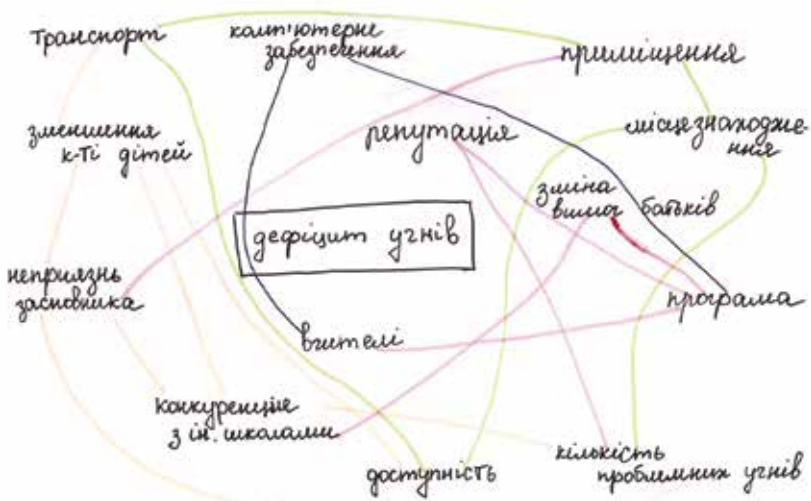 транспорт
комп'ютерне
забезпечення
приміщення
зменшення
к-ті дітей
репутація
місцезнаходже-
ння
зміна
вимог батьків
дефіцит учнів
неприязнь
засновника
програма
вчителі
конкуренція
з ін. школами
доступність
кількість
проблемних учнів